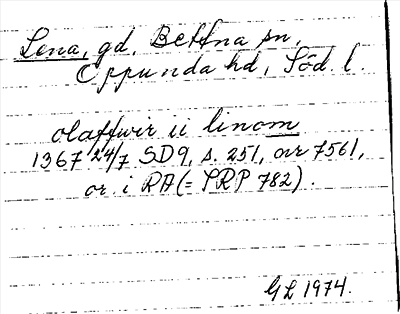 Lena, gd. Bettna sn,
Oppunda hd, Söd. l.
olaffwir ii linom
1367 24/7 SD9, s. 251, nr 7561,
or. i RA (= SRP 782).
GL 1974.